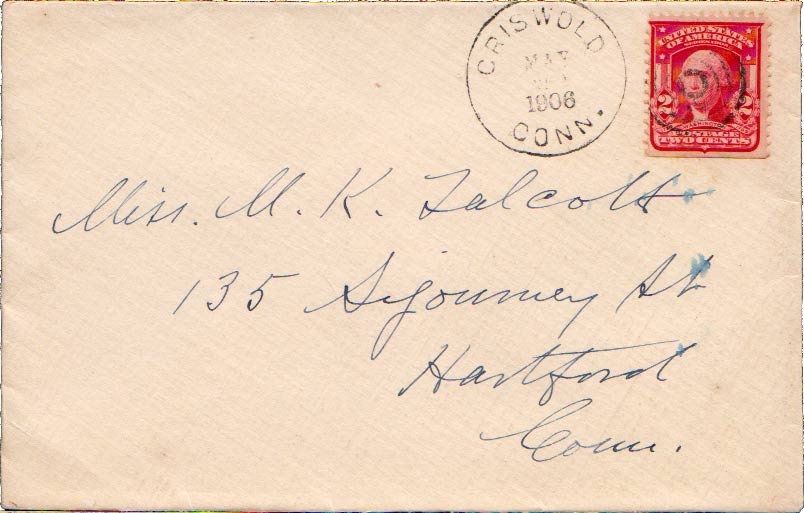 GRISWOLD
MAY
1906
CONN.
UNITED STATES
OF AMERICA
2 2
POSTAGE
TWO CENTS
Miss. M. K. Talcott
135 Sigourney St
Hartford
Conn.